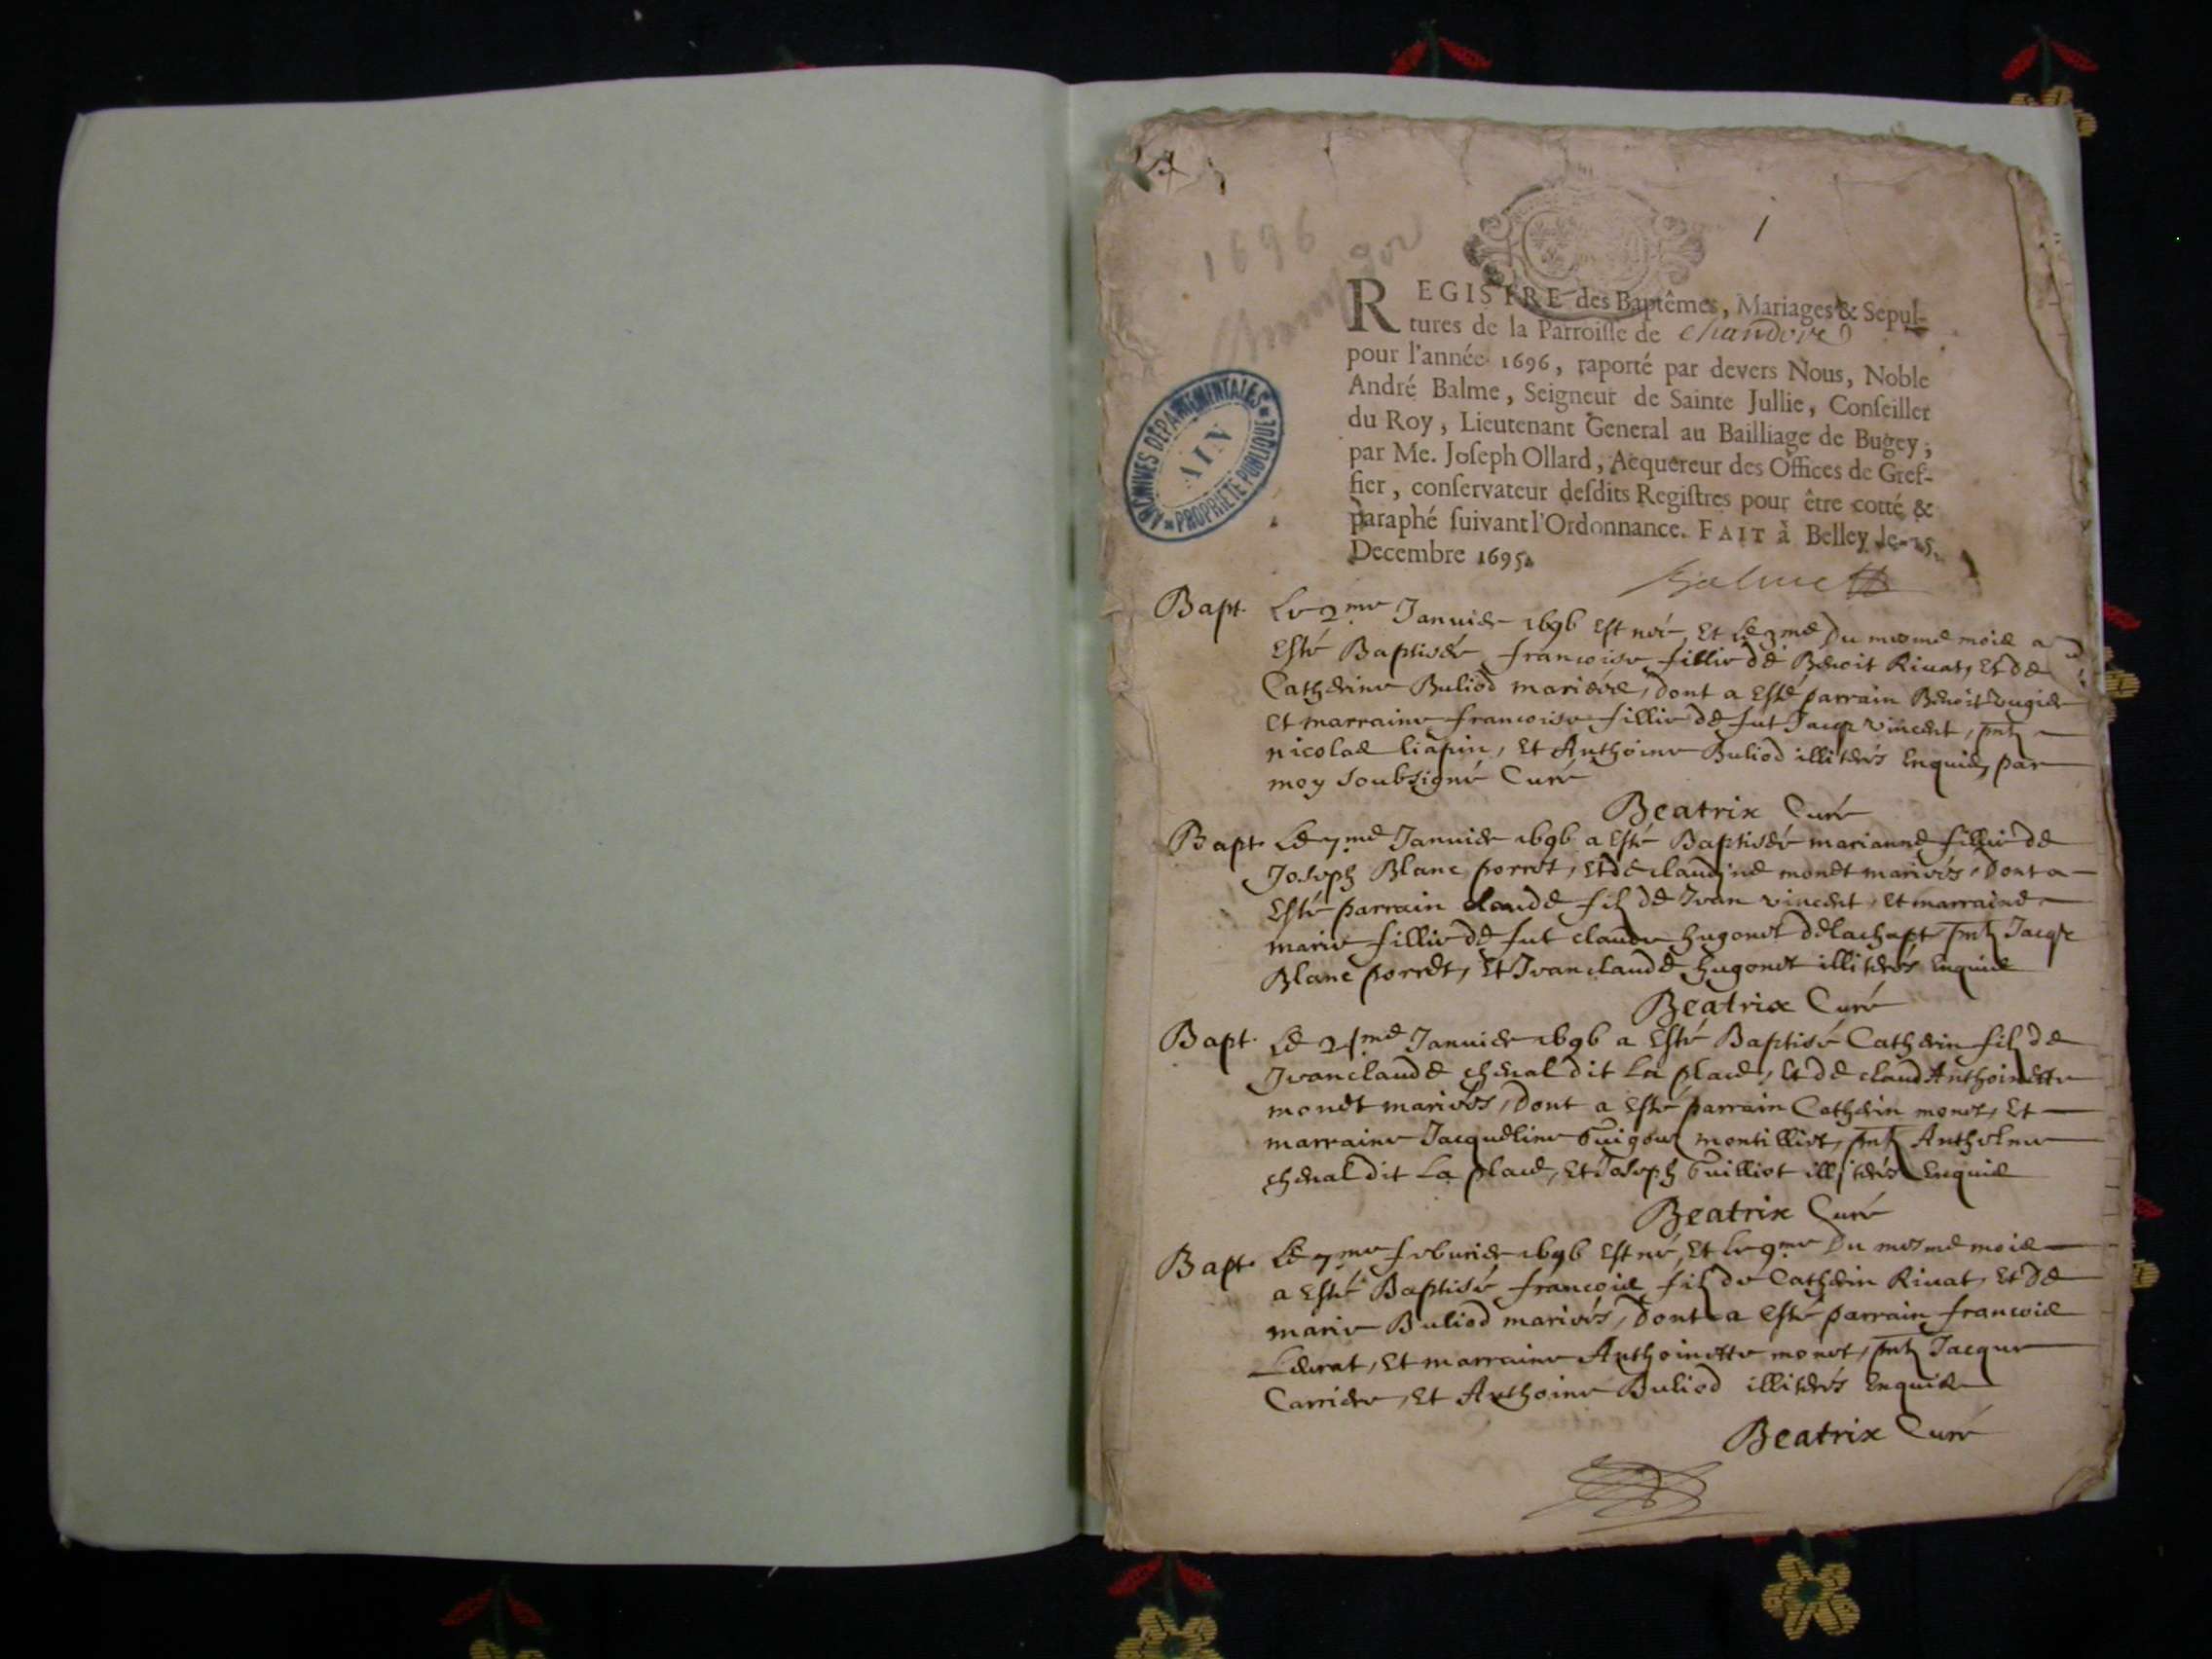 1696
1
REGISTRE des Baptêmes, Mariages & Sepul-
tures de la Parroisse de chandore
pour l'année 1696, raporté par devers Nous, Noble
André Balme, Seigneur de Sainte Jullie, Conseiller
du Roy, Lieutenant General au Bailliage de Bugey;
par Me. Joseph Ollard, Acquereur des Offices de Gref-
fier, conservateur desdits Registres pour être cotté &
paraphé suivant l'Ordonnance. FAIT à Belley le 15.
Decembre 1695.
Balme
ARCHIVES DEPARTEMENTALES
AIN
PROPRIETE PUBLIQUE
Bapt. Le 2me Januier 1696 est née, Et Le 3me Du mesme mois a
Esté Baptisée francoise fillie de Benoit Riuat, Et de
Catherine Buliod mariées, Dont a Esté parrain Benoit
et marraine francoise fillie de fut Jacqe vincent, pnts
nicolas liapin, Et Anthoine Buliod illiterés Enquis, par
moy soubsigné Curé
Beatrix Curé
Bapt. Le 7me Januier 1696 a Esté Baptisée marianne fillie de
Joseph Blanc porret, Et de claudine monet mariés, Dont a
Esté parrain claude fils de Jean vincent, Et marraine
marie fillie de fut claude hugonet delachapt pnts Jacqe
Blanc porret, Et Jean claude hugonet illiterés Enquis
Beatrix Curé
Bapt. Le 21me Januier 1696 a Esté Baptisé Catherin fils de
Jean claude cheual dit La place, Et de claud Anthoinette
monet mariés, Dont a Esté parrain Catherin monet, Et
marraine Jacqueline Guigout montilliet, pnts Anthelme
cheual dit La place, Et Joseph Guilliot illiterés Enquis
Beatrix Curé
Bapt. Le 7me feburier 1696 Est né, Et Le 9me Du mesme mois
a Esté Baptisé francois fils de Catherin Riuat, Et De
marie Buliod mariés, Dont a Esté parrain francois
Et marraine Anthoinette monet, pnts Jacque
Carriere, Et Anthoine Buliod illiterés Enquis
Beatrix Curé